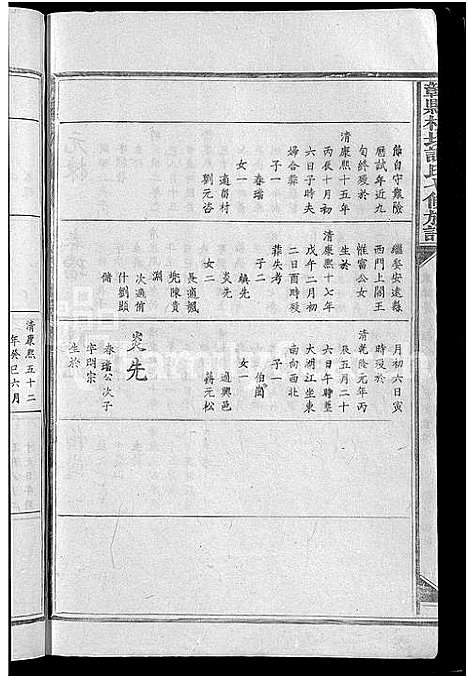 節自守艱險
歷試年近九
旬終歿於
清康熙十五年
丙辰十月初
六日子時夫
婦合葬
子一
春瑞
女一
適留村
劉元咨
繼娶安遠縣
西門上閣王
惟富公女
生於
清康熙十七年
戊午二月初
二日酉時歿
葬失考
子二
縝先
炎先
女二
長適楓
陳貴
淵
次適角
什劉顯
儲
月初六日寅
時歿於
清乾隆元年丙
辰五月二十
六日午時葬
大湖江坐東
南向西北
子一
伯蘭
女一
適興邑
蔣元松
炎先
春瑞公次子
字明宗
生於
清康熙五十二
年癸巳六月